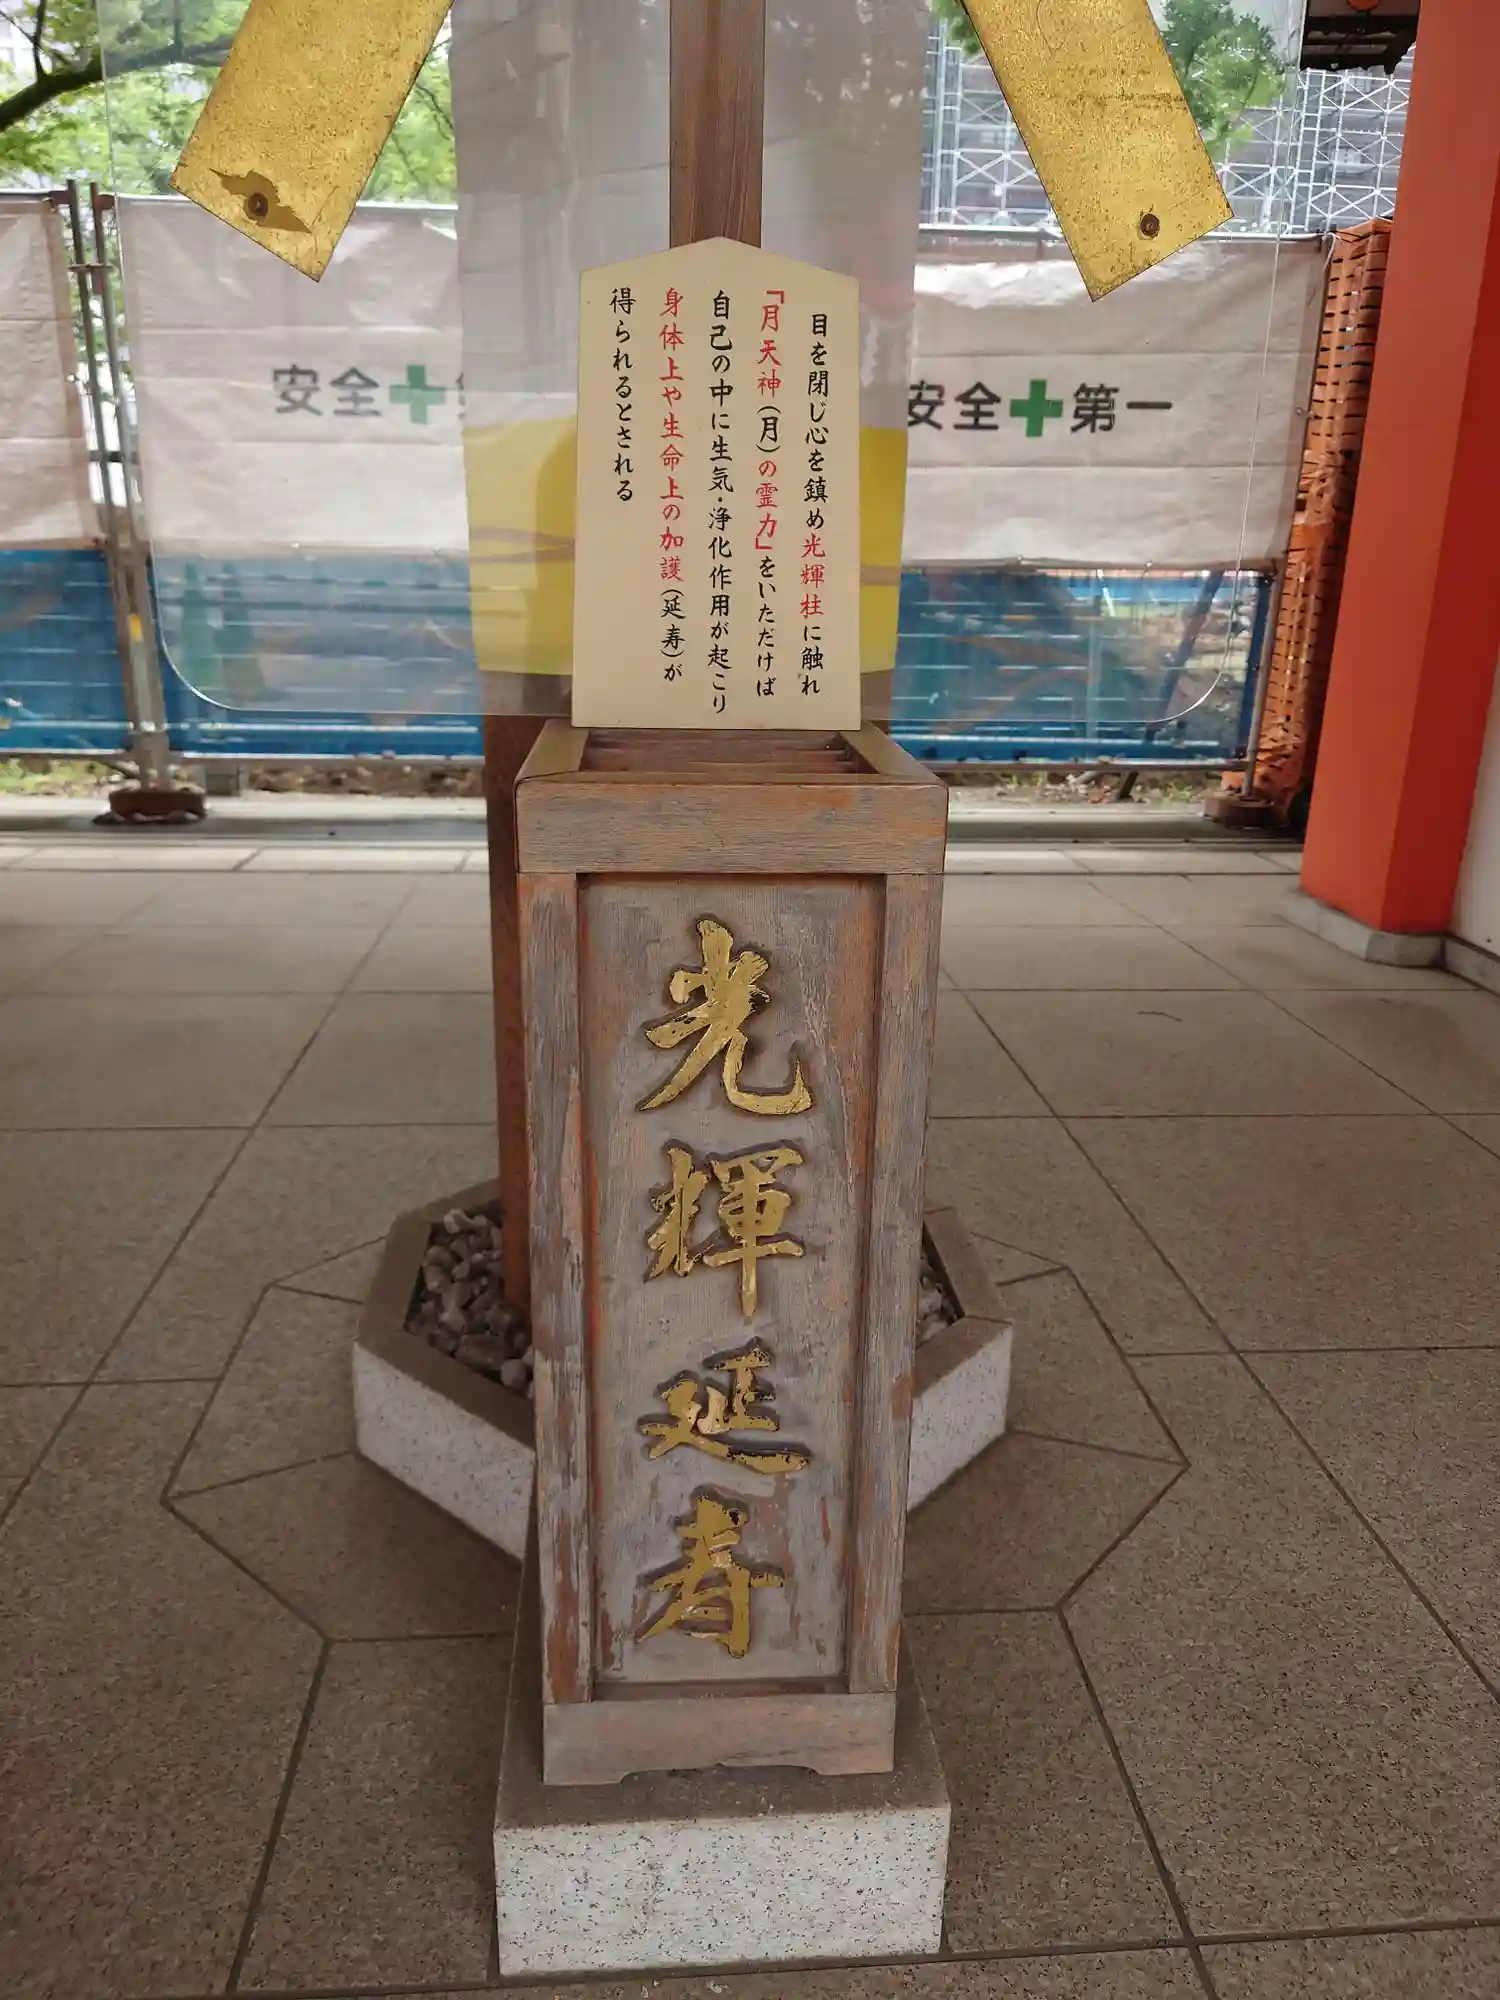 目を閉じ心を鎮め光輝柱に触れ
「月天神（月）の霊力」をいただけば
自己の中に生気・浄化作用が起こり
身体上や生命上の加護（延寿）が
得られるとされる
安全
安全第一
光輝延寿